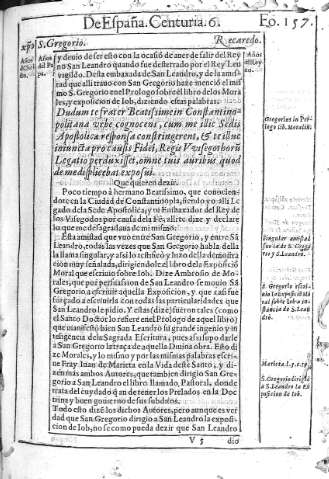 De España. Centuria. 6. Fo. 157.
S. Gregorio. Recaredo.
y deuio de ser esto con la ocasió de auer de salir del Rey
no San Leandro quando fue desterrado por el Rey Leu
uigildo. Desta embaxada de San Leandro, y de la amis
tad que alli trauo con San Gregorio haze mencion el mis
mo S. Gregorio en el Prologo sobre el libro de los Mora
les, y exposicion de Iob, diziendo estas palabras.
Dudum te frater Beatissime in Constantino
politana vrbe cognoscens, cum me illic Sedis
Apostolicæ responsa constringerent, & te illuc
iniuncta pro causis Fidei, Regis Vusegothorū
Legatio perduxisset, omne tuis auribus quod
de me displicebat exposui.
Que quieren dezir.
Poco tiempo à hermano Beatissimo, que conociendo
te en la Ciudad de Constantinopla, siendo yo alli Le
gado de la Sede Apostolica, y tu Embaxador del Rey de
los Visogodos por causa de la Fè, allite dixe y declare
lo que me desagradaua de mi mismo.
Esta amistad que vuo entre San Gregorio, y entre Sã
Leandro, todas las vezes que San Gregorio habla della
la llama singular, y assi lo testifico y hizo della demostra
cion muy señalada, dirigiendole el libro de la Exposició
Moral que escriuio sobre Iob. Dize Ambrosio de Mo-
rales, que por persuasion de San Leandro se mouio Sã
Gregorio a escriuir aquella Exposicion, y que casi fue
forçado a escriuirla con todas las particularidades que
San Leandro le pidio. Y estas (dize) fueron tales (como
el Santo Doctor lo refiere en el Prologo de aquel libro)
que manifiestò bien San Leandro su grande ingenio y in
teligencia de la Sagrada Escritura, pues assi supo darle
a San Gregorio la traça de aquella Diuina obra. Esto di
ze Morales, y lo mismo y por las mismas palabras escri-
ue Fray Iuan de Marieta en la Vida deste Santo, y di-
zen mas ambos Autores, que tambien dirigio San Gre-
gorio a San Leandro el libro llamado, Pastoral, donde
trata del cuydado q̃ an de tener los Prelados en la Doc
trina y buen gouierno de sus subditos.
Todo esto dizē los dichos Autores, pero aunque es ver
dad que San Gregorio dirigio a San Leandro la exposi-
cion de Iob, no se como pueda dezir que San Leandro
V 5 dio
Gregorius in Pro-
logo lib. Moraliū.
Singular amistad
entre S. Gregorio
y S. Leandro.
Marieta. l. 5. c. 29
S. Gregorio dirigio
a S. Leandro la Ex
posicion de Iob.